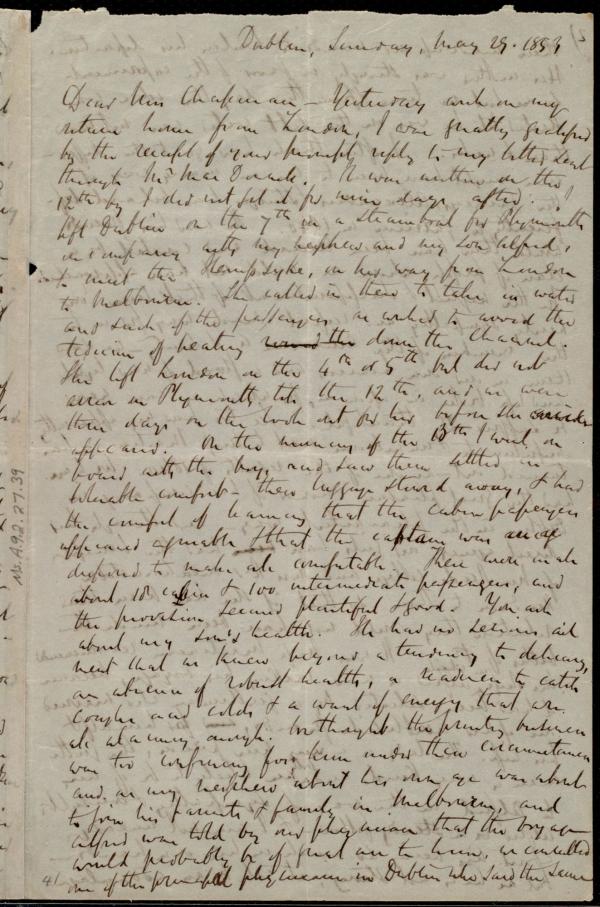 Dublin, Sunday, May 29. 1853
Dear Mrs Chapman — Yesterday week on my
return home from London, I was greatly gratified
by the receipt of your prompt reply to my letter sent
through Mr. It was written on the
12th by I did not get it for nine days after. I
left Dublin on the 7th in a steamboat for Plymouth
in company with my nephew and my son Alfred,
to meet the Hempsyke, on her way from London
to Melbourne. She called in there to take in water
and such of the passengers as wished to avoid the
tedium of beating round the down the Channel.
She left London on the 4th or 5th but did not
arrive in Plymouth till the 12th, and we were
three days on the look out for her before she
appeared. On the morning of the 13th I went on
board with the boys and saw them settled in
tolerable comfort — their luggage stowed away, & had
the comfort of learning that the cabin passengers
appeared agreeable & that the captain was
disposed to make all comfortable. There were in all
about 18 cabin & 100 intermediate passengers, and
the provision seemed plentiful & good. You ask
about my son's health. He had no serious ail
ment that we knew beyond a tendency to delicacy,
an absence of robust health, a readiness to catch
coughs and colds & a want of energy that are
all alarming enough. We thought the printing business
was too confining for him under these circumstances
and as my nephew about his own age was about
to join his parents & family in Melbourne, and
Alfred was told by our physician that the voyage
would probably be of great use to him, we consulted
one of the principal physicians in Dublin who said the same
41
Ms.A.9.2.27.39